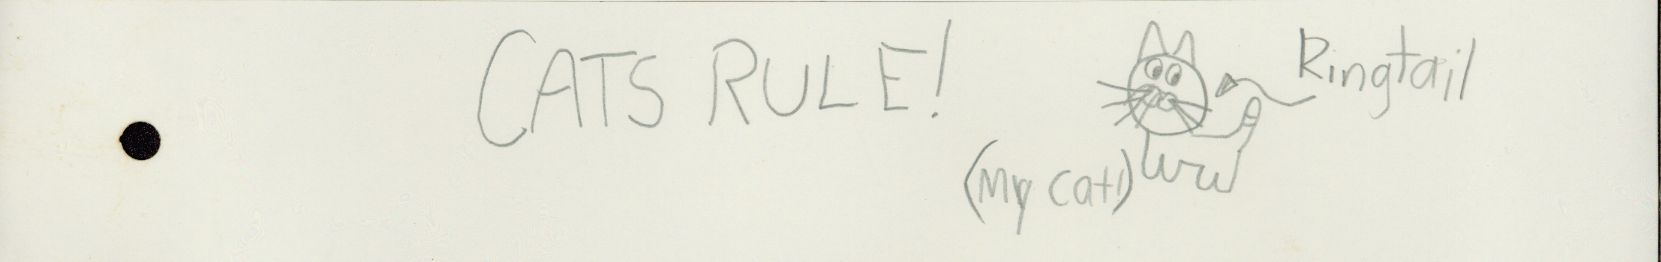 CATS RULE!
Ringtail
(My cat!)